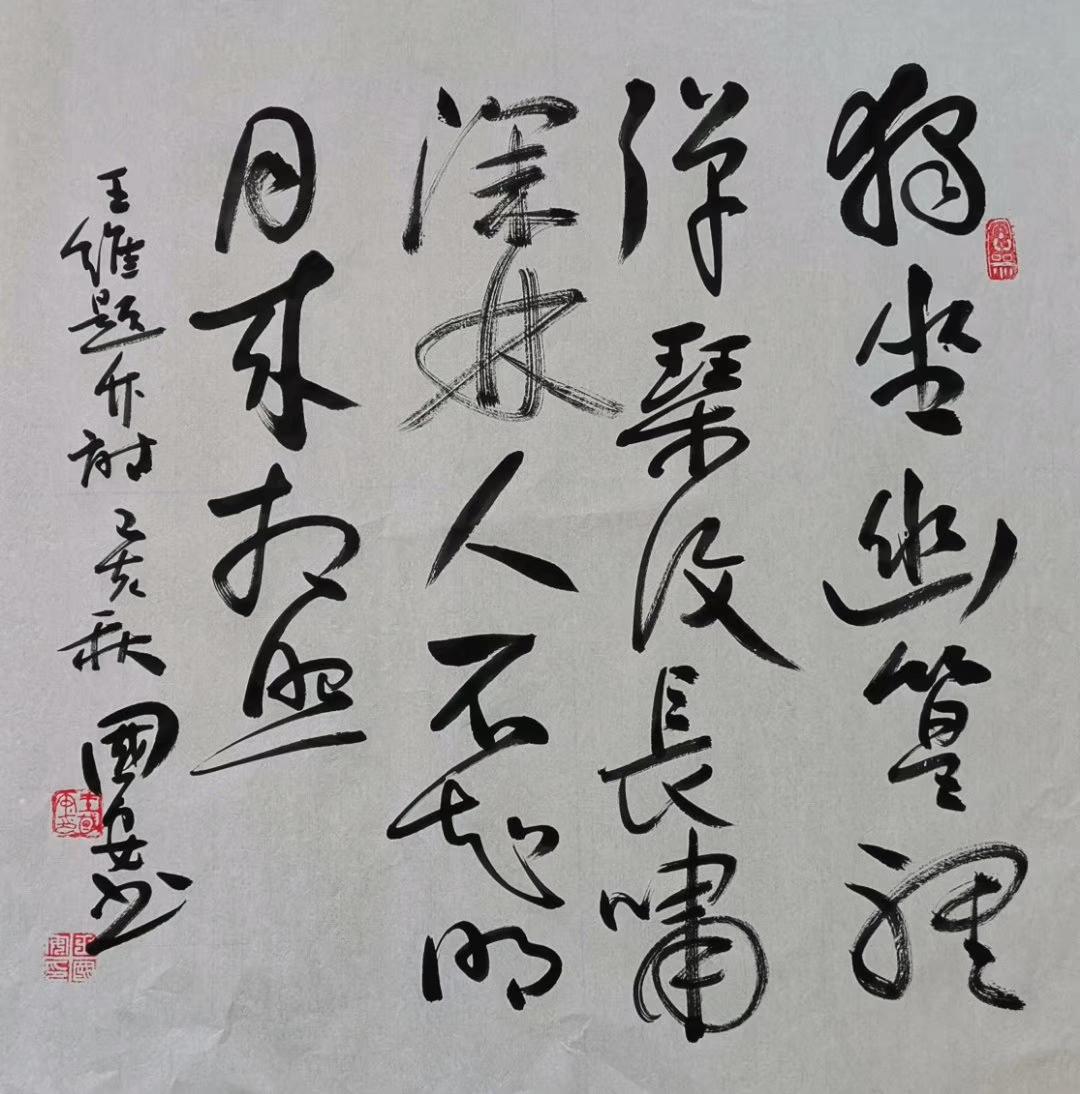 獨坐幽篁裡
彈琴復長嘯
深林人不知明
月来相照
王維題竹詩 己亥秋 國安书